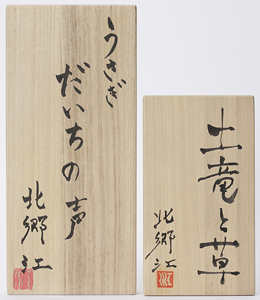 うさぎ
だいちの声
北郷江
土竜と草
北郷江